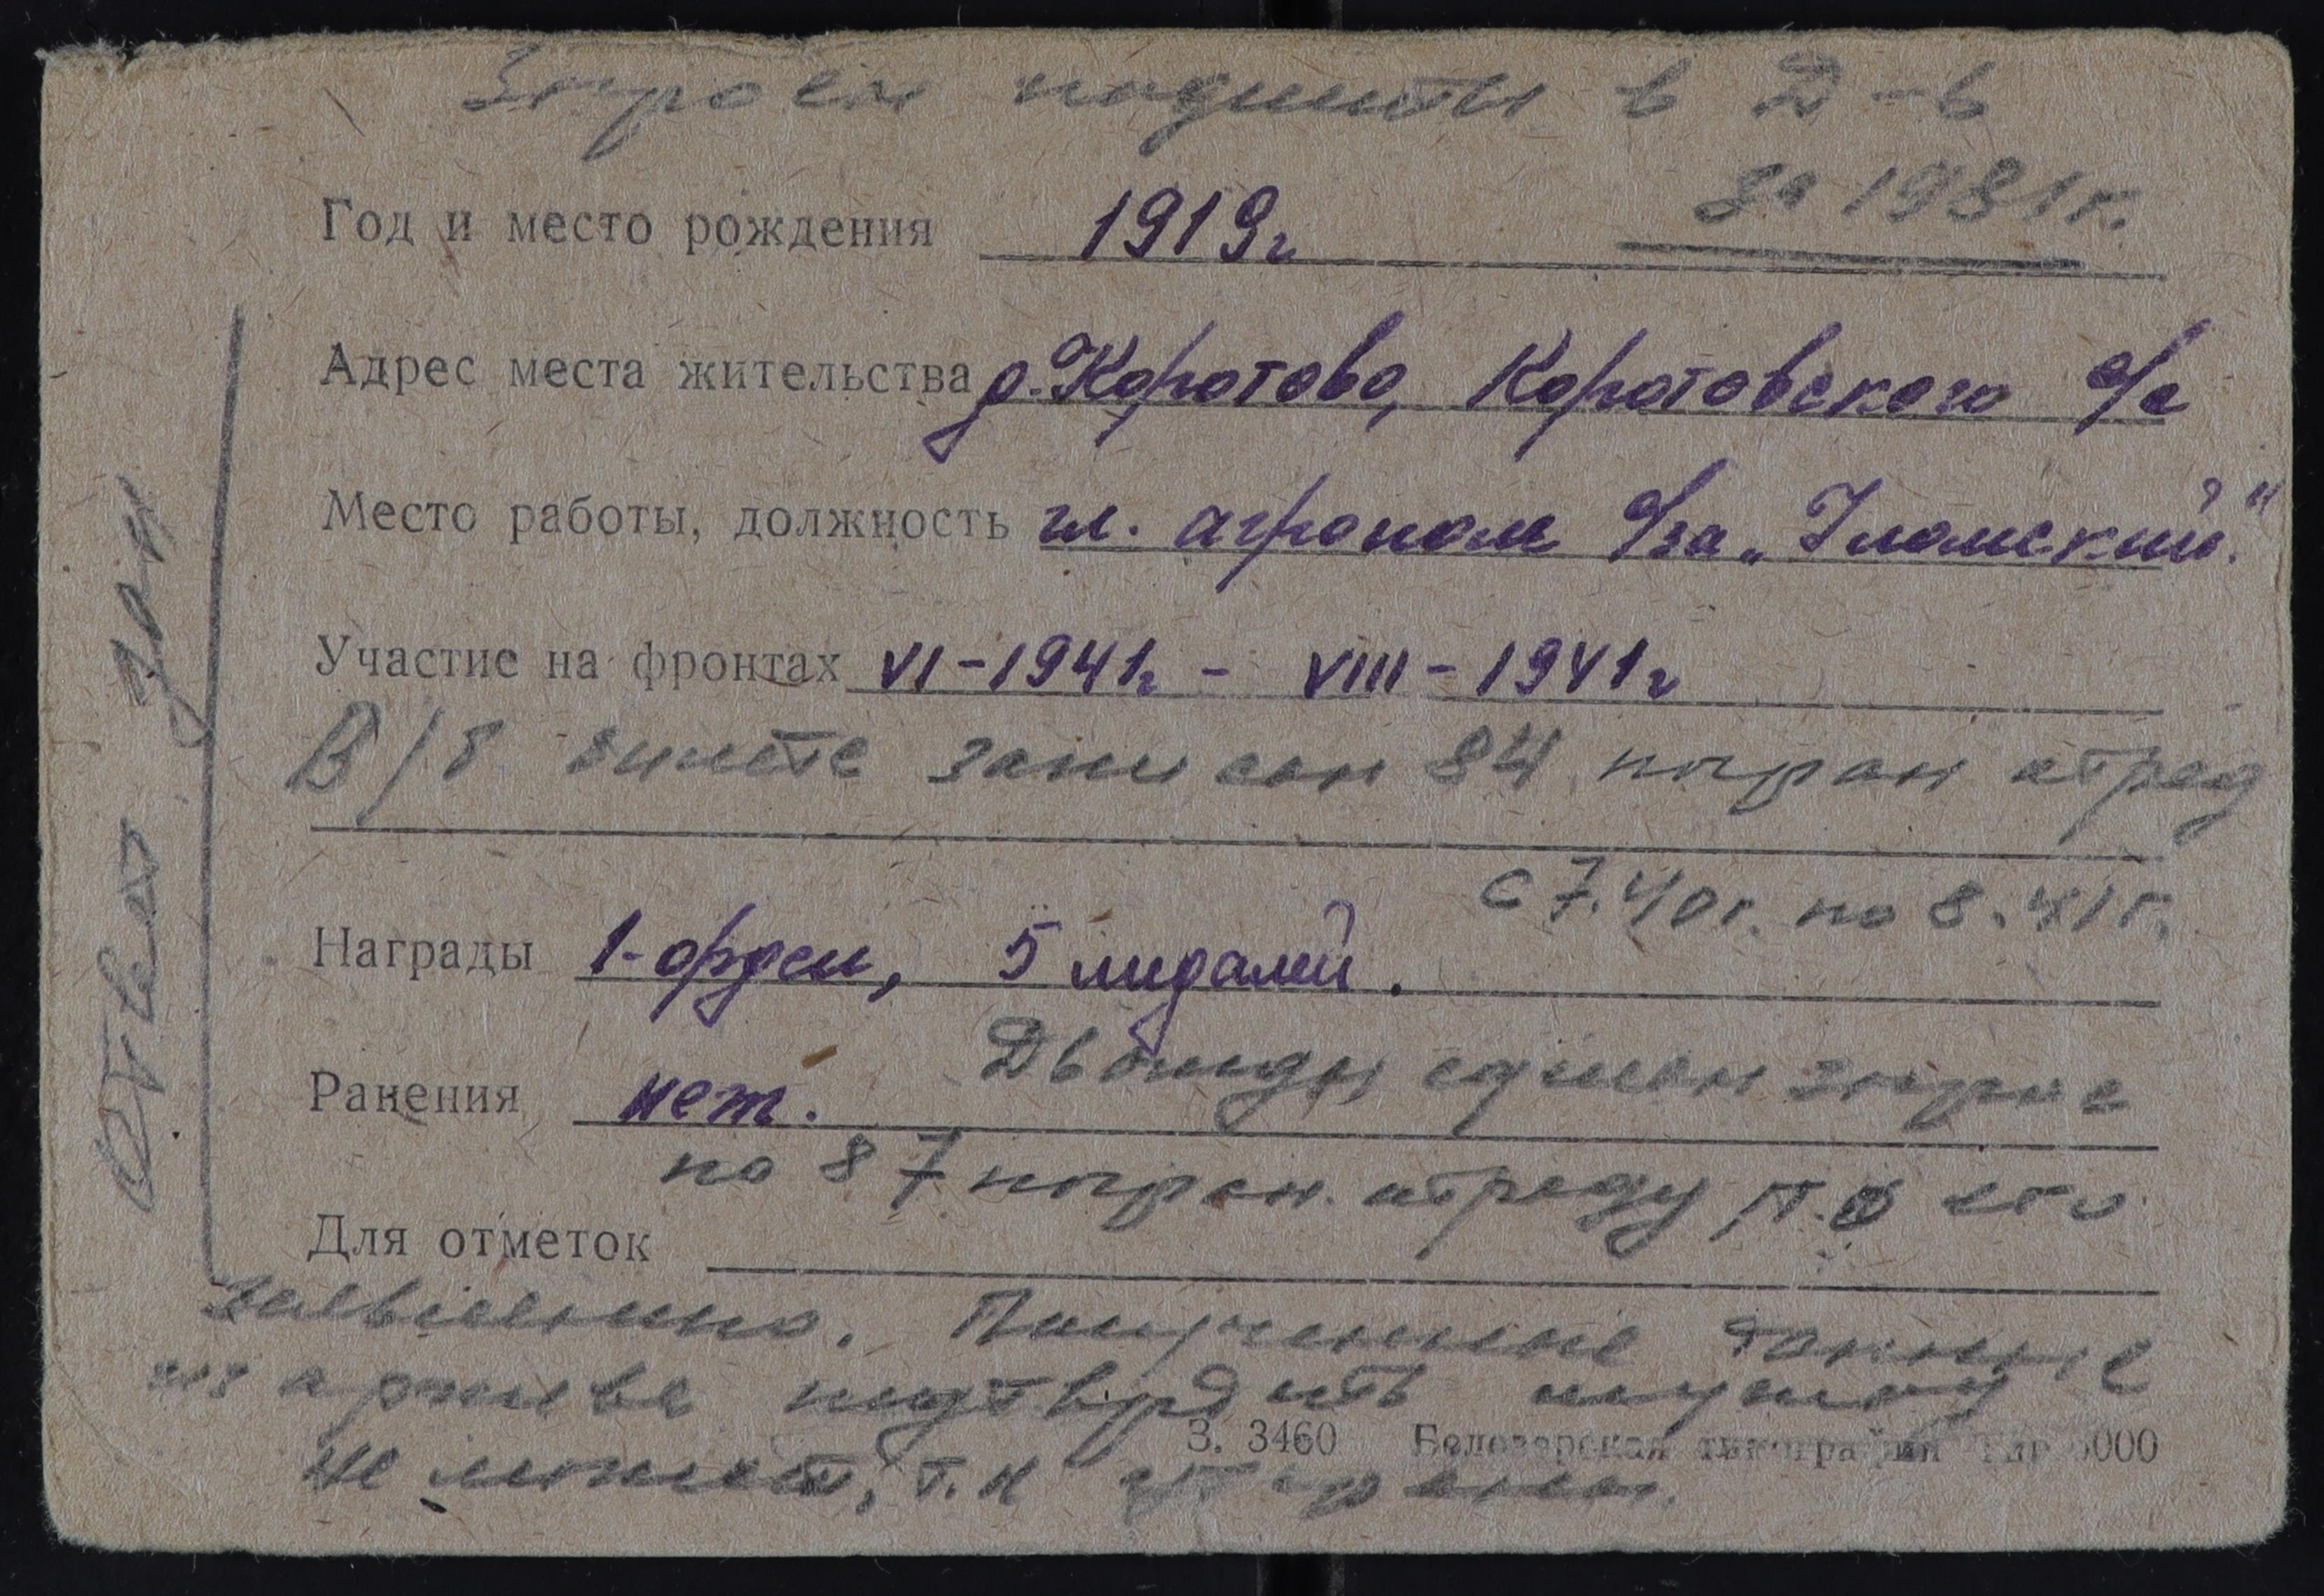 Запросы подшиты в Д-в
за 1981г.
Год и место рождения 1919г
Адрес места жительства д. Коротово, Коротовского с/с
Место работы, должность гл. агроном с/за „Уломский."
Участие на фронтах VI-1941г - VIII-1941г
В/б билете записан 84 погран отряд
с 7.40г. по 8.41г.
Награды 1-орден, 5 мидалей.
Ранения нет. Дважды сделан запрос
по 87 погран. отряду П.О его
Для отметок
заявлению. Полученные данные
из архива подтвердить
не может, т.к утеряны.
З. 3460 Белозерская типография Тир 5000
Ответ